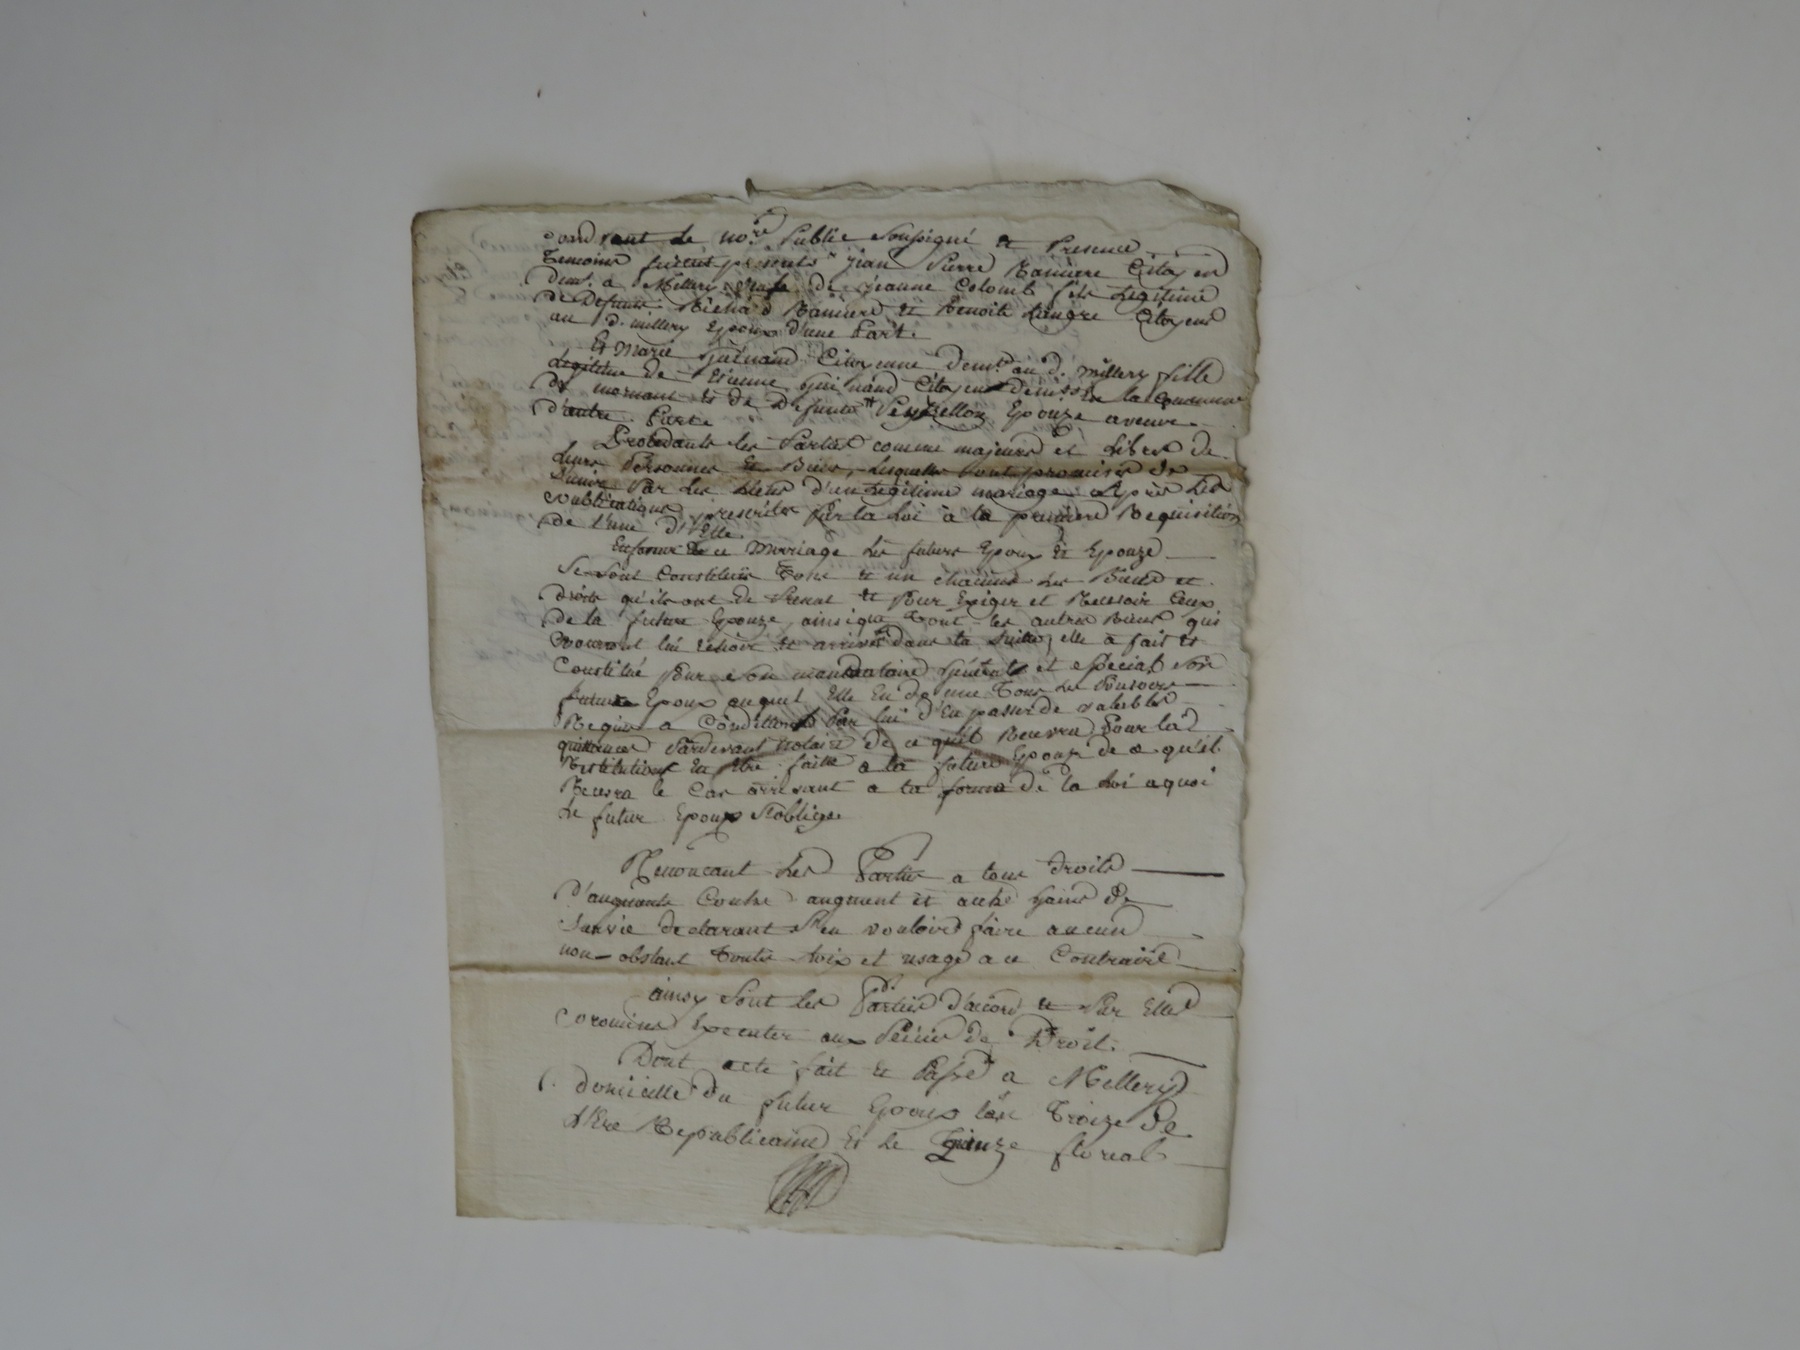 pardevant le no.re Public Soussigné et Presence
Temoins furent presents jean Pierre Baniere Citoyen
dem.t a Millery veufe de jeanne Colomb fils Legitime
de Defunts Richard Baniere et Benoite Langre Citoyens
au d. millery Epoux d'une Part.
Et Marie Guinand Citoyenne dem.t au d. millery fille
Legitime de Etienne guinand Citoyen dem.t en la Commune
de mornant et de Defunte Peyzellon Epouze avenir
d'autre Part.
Procédants les Parties comme majeures et Libres de
Leurs Personnes et Biens, Lesquelles sont promises de
s'unire Par les Liens d'un Legitime mariage Après Les
Publications prescrites Par la Loi à la première Requisition
de l'une d'Elle.
En faveur de ce Marriage Les futurs Epoux et Epouze
Se sont Constitués Tous et un chacuns Les Biens et
droits qu'ils ont de Present et Pour Exiger et Recevoir Ceux
de la future Epouze, ainsi que Tout les autres Biens qui
Pourront lui échoir et arriver dans la suitte, elle a fait et
Constitué Pour son mandataire Général et espécial Son
futur Epoux auquel Elle en donne Tous Les Pouvoirs
Requis a Condition Par lui d'en passer de valables
quittances Pardevant notaire de ce qu'il Recevra Pour la
Restitution En être faitte a la future Epouze de ce qu'il
Recevra le Cas arrivant a la forme de la Loi a quoi
Le futur Epoux S'oblige
Renonçant Les Parties a tous droits
d'augments Contre augment et autre Gains de
Survie declarant N'en vouloire faire aucun
non-obstant Toutes Loix et usage a ce Contraire
ainsy Sont les d. Parties d'accord et Par Elles
Promises Executer aux Peines de Droit.
Dont acte fait et Passé a Millery
domicille du futur Epoux l'an Treize de
L'Ere Republicaine Et le Quinze floreal